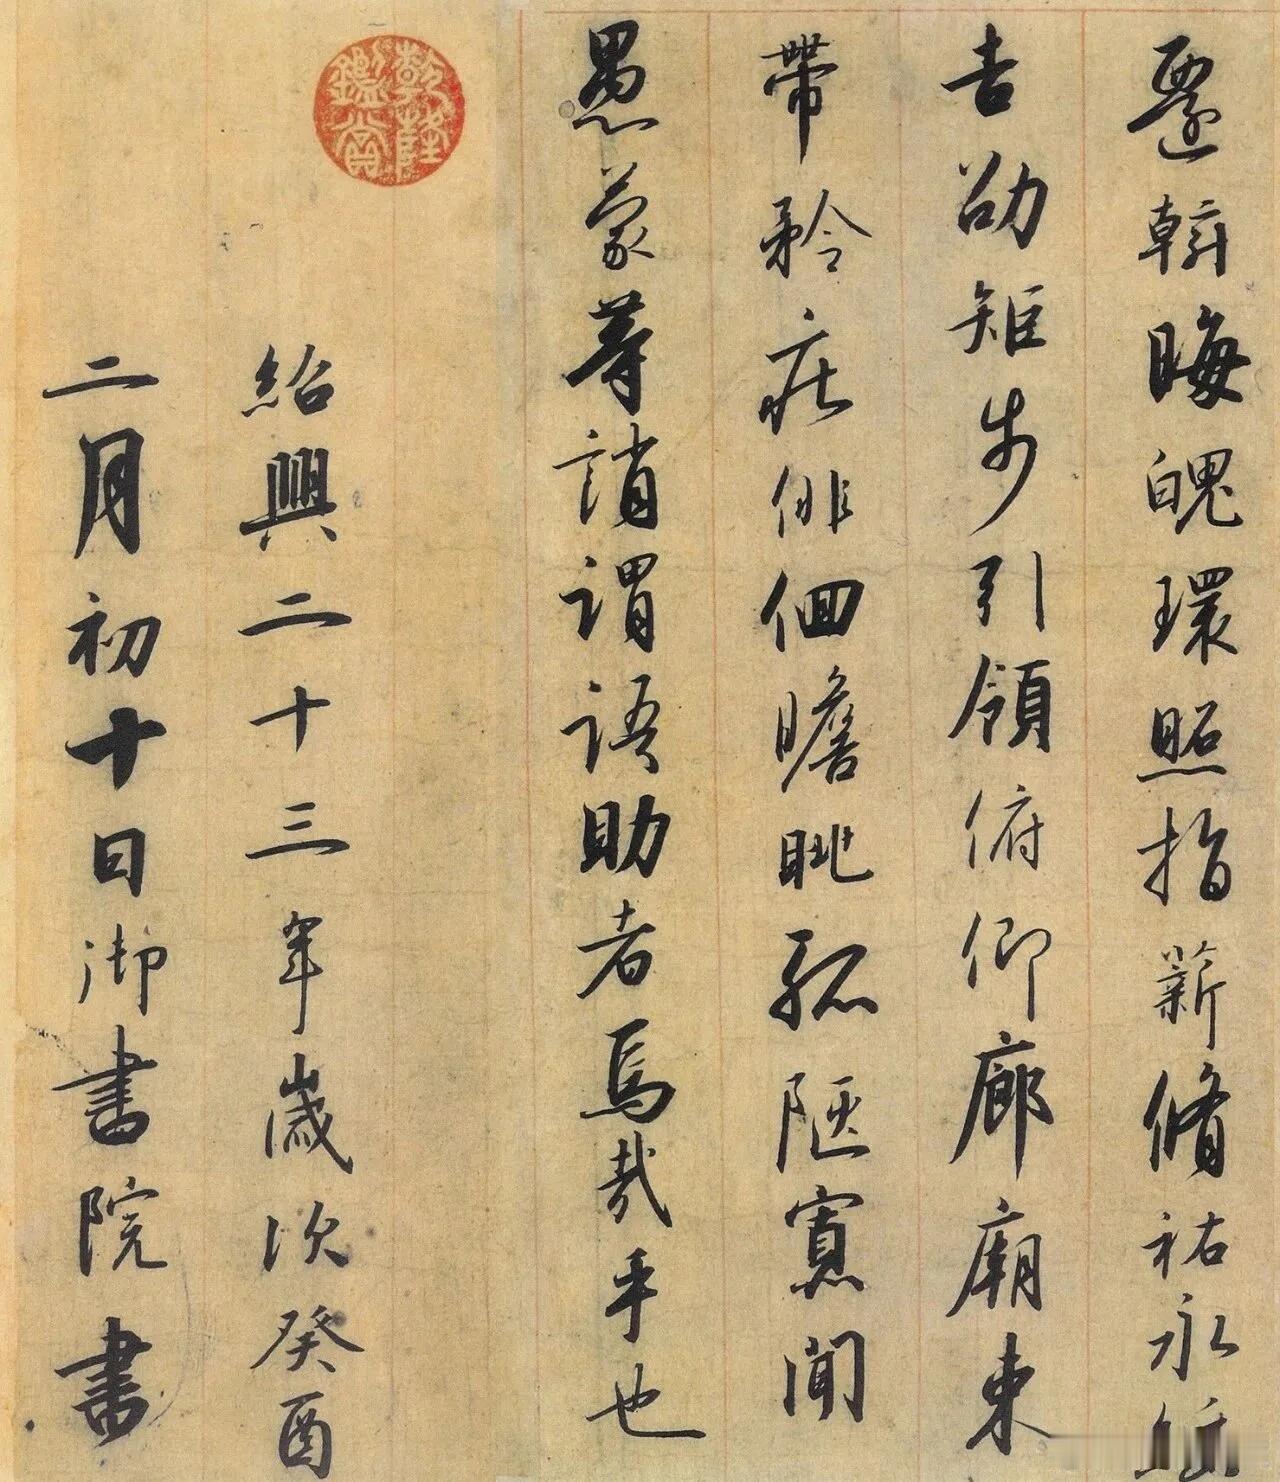 遷斡晦魄環照指薪脩祐永綏
吉劭矩步引領俯仰廊廟束
帶矜莊俳佪瞻眺孤陋寡聞
愚蒙等誚謂語助者焉哉乎也
乾隆鑑賞
紹興二十三年歲次癸酉
二月初十日御書院書